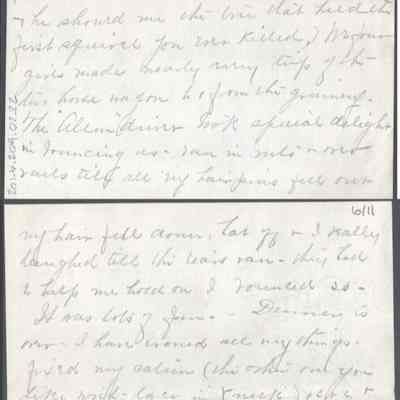 he showed me the tree that held the
first squirrel you ever killed, We four
girls made nearly every trip of the
two horse wagon to & from the grinning.
The "Allen" driver took special delight
in bouncing us - ran in ruts - over
rails till all my hair pins fell out
my hair fell down, hat off & I really
laughed till the tears ran - they had
to help me hold on I bounced so -
It was lots of fun. - Dinner is
over - I have ironed all my things -
fixed my satin (the other one you
like work - lace in neck) over &
2014.204.07.22
6/11